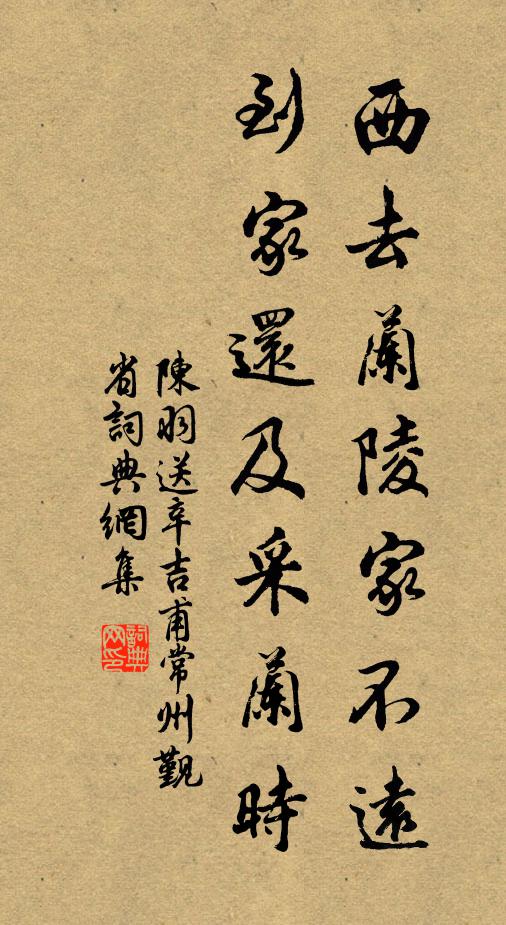 西去蘭陵家不遠
到家還及采蘭時
陳羽送辛吉甫常州覲
省詞典網集
詞典
网印